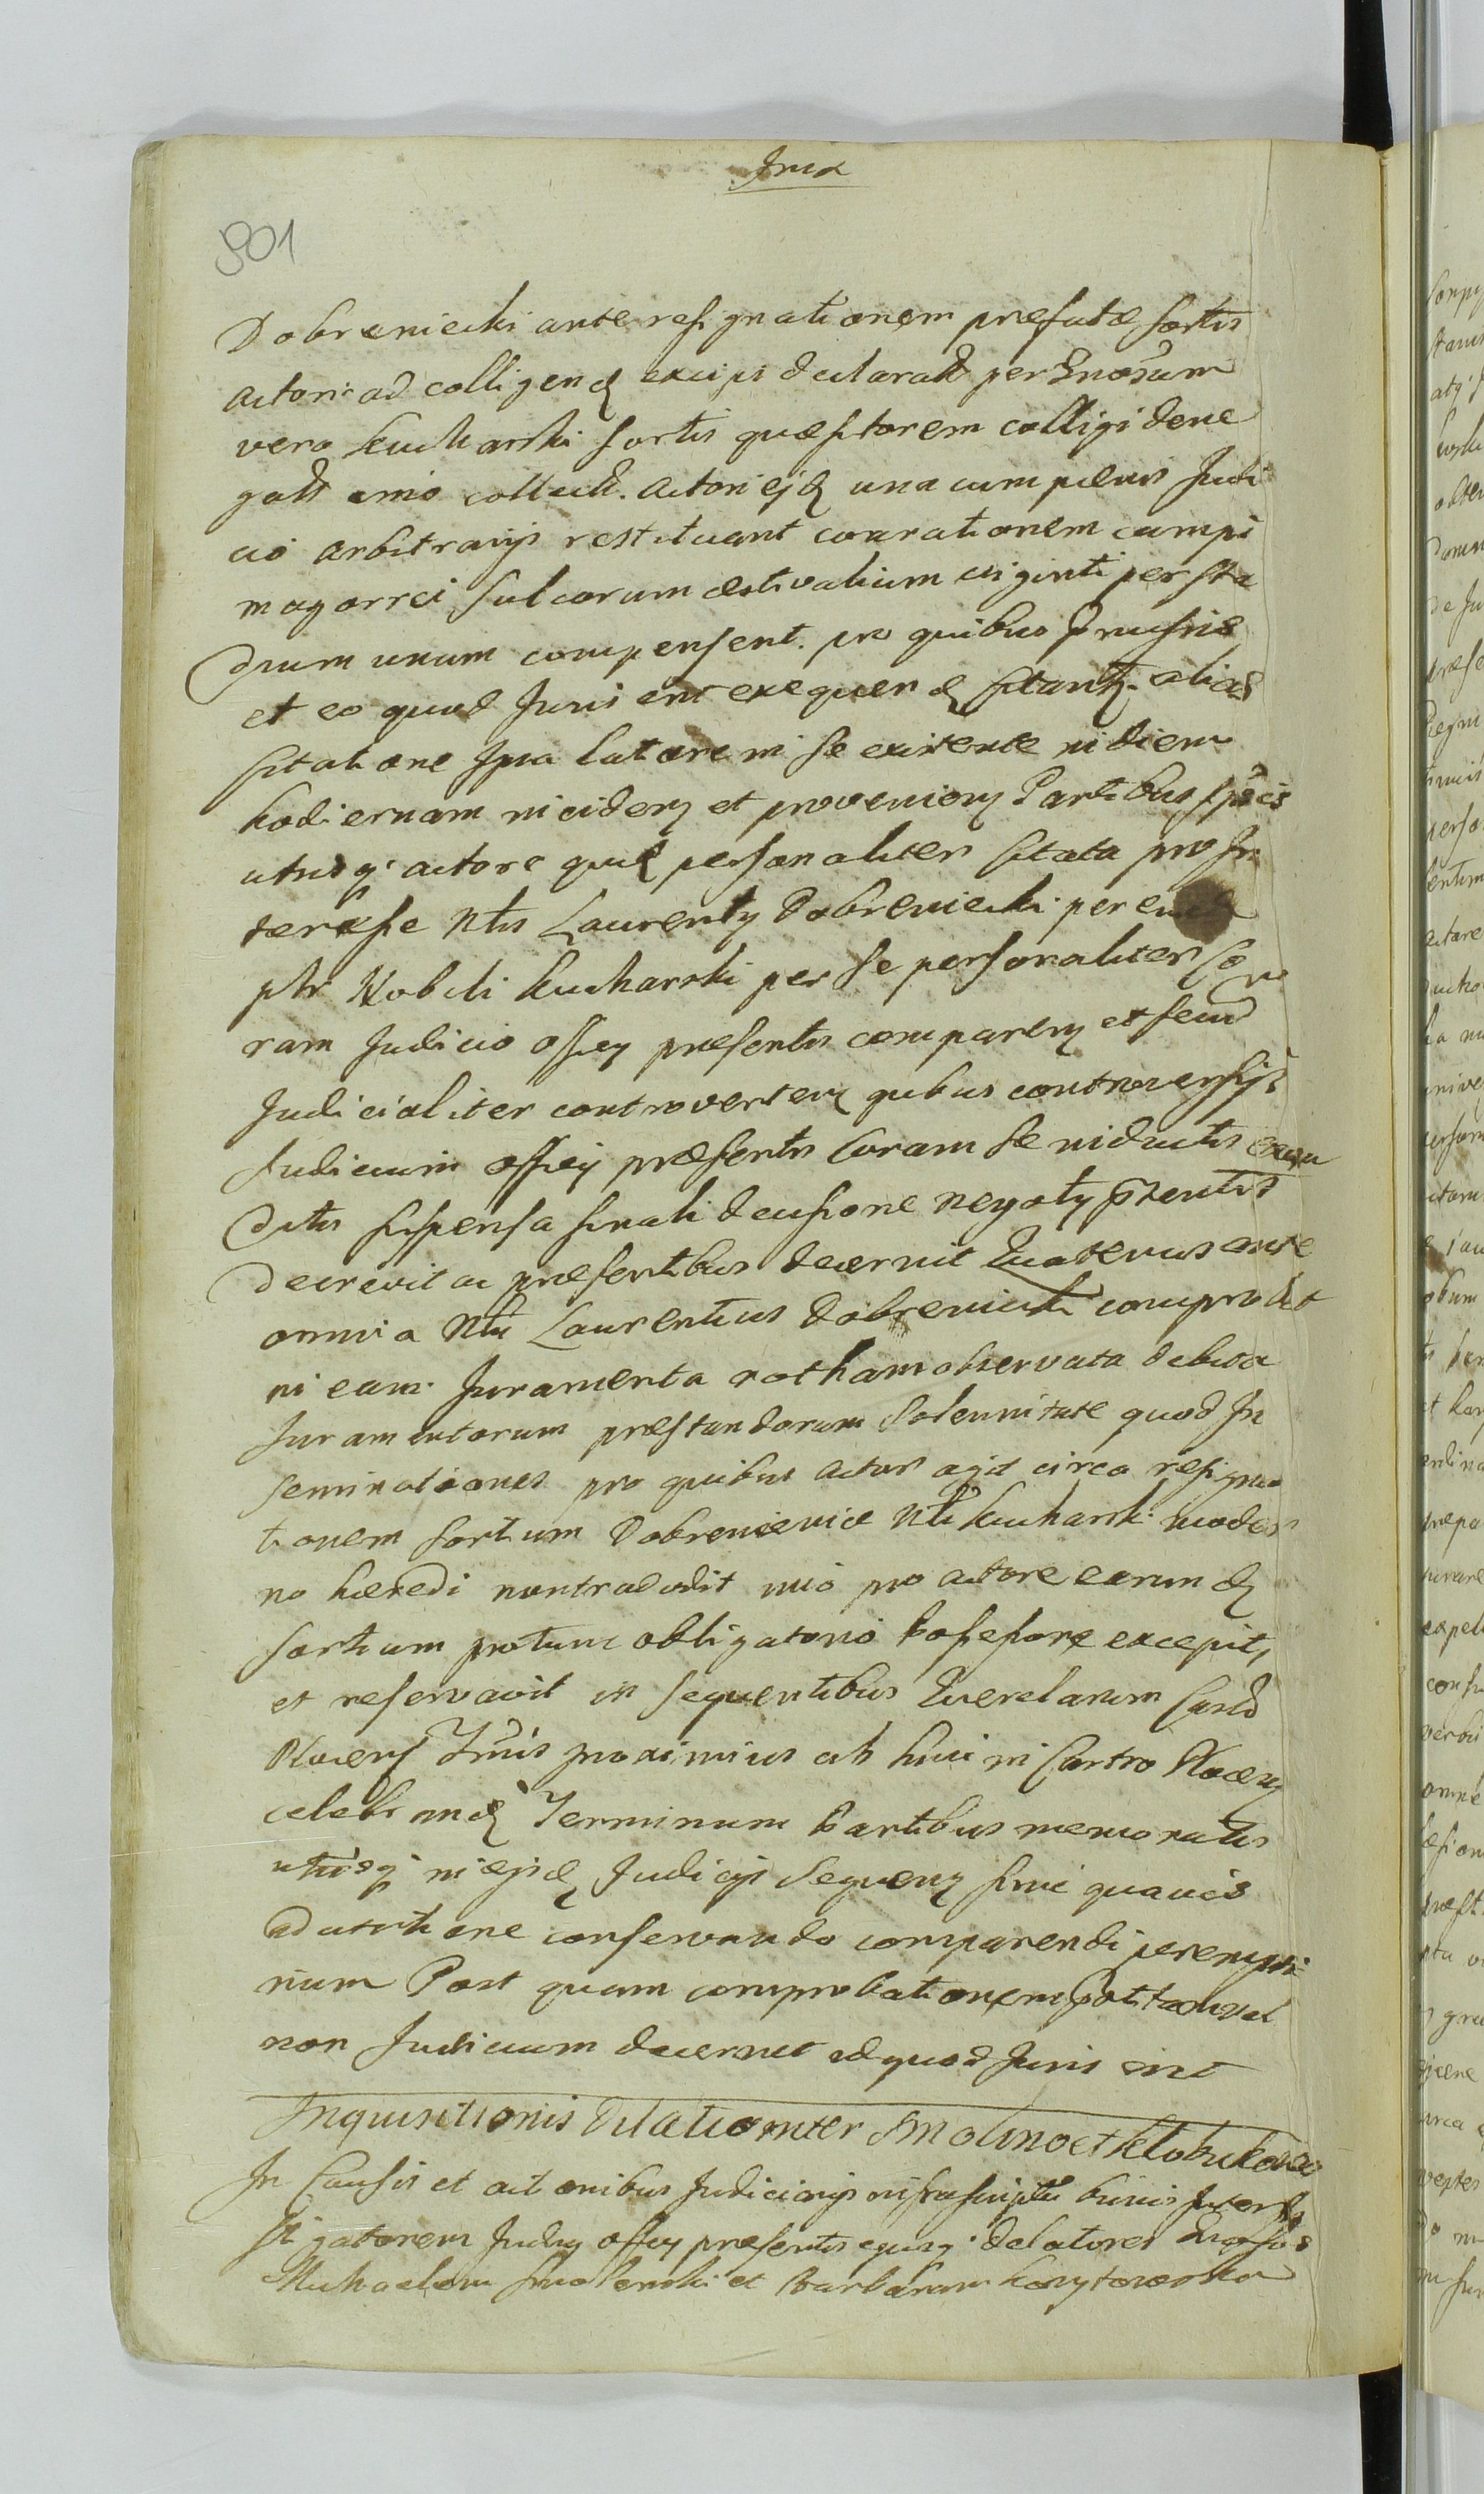 Inra
501
Dobreniecki ante resignationem præfatæ sortis
actori ad colligend excipi declaratt per Gnosum
vero Kucharski sortis quæstorem colligi dene
gatt imo collectt. actori ejd una cum pænis Judi
cio arbitrarijs restituant conarationem campi
magorrei sulcorum æstivalium viginti per sta
dium unum compensent. pro quibus præmis
et eo quod Juris erit exequend citantr. alias
citatione ipsa latore in se existente in diem
hodiernam inciden et provenien Partibus ipsis
utrisq' actore quid personaliter citata pro In
teresse Nlis Laurenty Dobreniecki per
ptr Nobili Kucharski per se personaliter Co
ram Judicio officy præsentis comparen et secum
Judicialiter controverten quibus controversijs
Judicium officy præsentis coram se inductis exau
ditis suspensa finali decisione negoty præsentis
decrevit ac præsentibus decernit Quatenus ante
omnia Nlis Laurentius Dobreniecki comprobet
in eam Juramenta rotham observata debita
Juramentorum præstandorum Solennitate quod In
seminationes pro quibus actor agit circa resigna
tionem sortium Dobrenieviæ Nli Kucharski moder
no hæredi non tradidit imo pro actore earund
sortium protunc obligatorio Possessore excepit,
et reservavit in sequentibus Querelarum Castr
Plocens Tmis proximius ab huic in Castro Plocen
celebrand Terminum Partibus memoratis
utrisq' in ejsd Judicijs Sequen sine quavis
adcitatione conservando comparendi perempto
rium Post quam comprobationem positam vel
non Judicium decernet id quod Juris erit
Inquisitionis Dilatio inter Smolino et Klobukowo
In Causis et actionibus Judiciarijs infrascriptis binis Inter In
stigatorem Judicy officy præsentis ejusq' delatores Gnosos
Michaelem Smolenski et Barbaram Korytowska